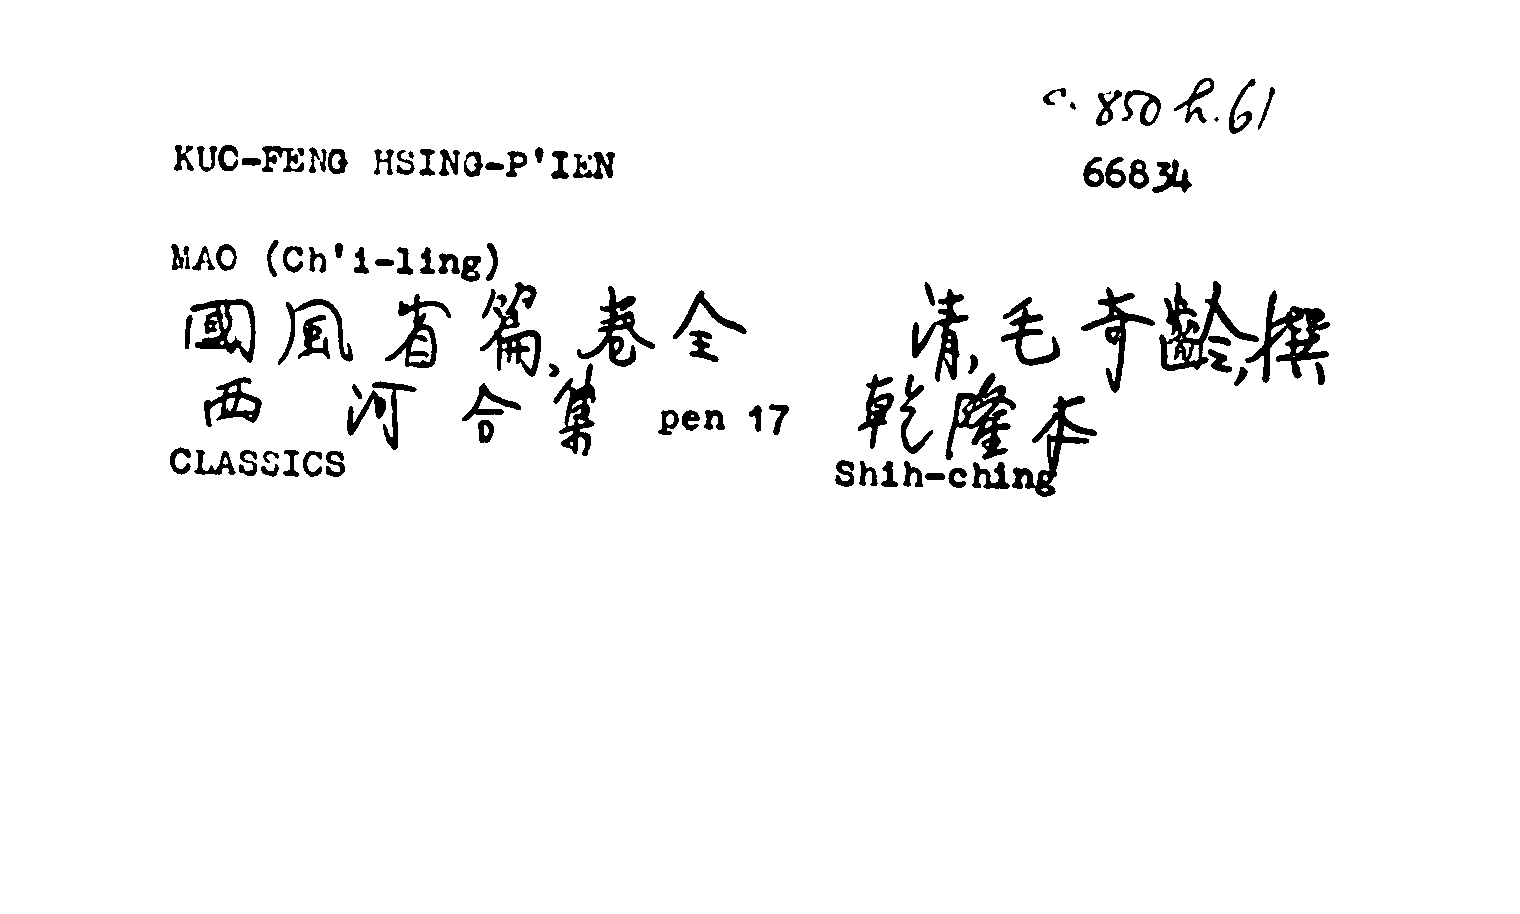 c. 850 h. 61
KUO-FENG HSING-P'IEN
66834
MAO (Ch'i-ling)
國風省篇、卷全 清,毛奇齡,撰
西河合集 pen 17 乾隆本
CLASSICS Shih-ching